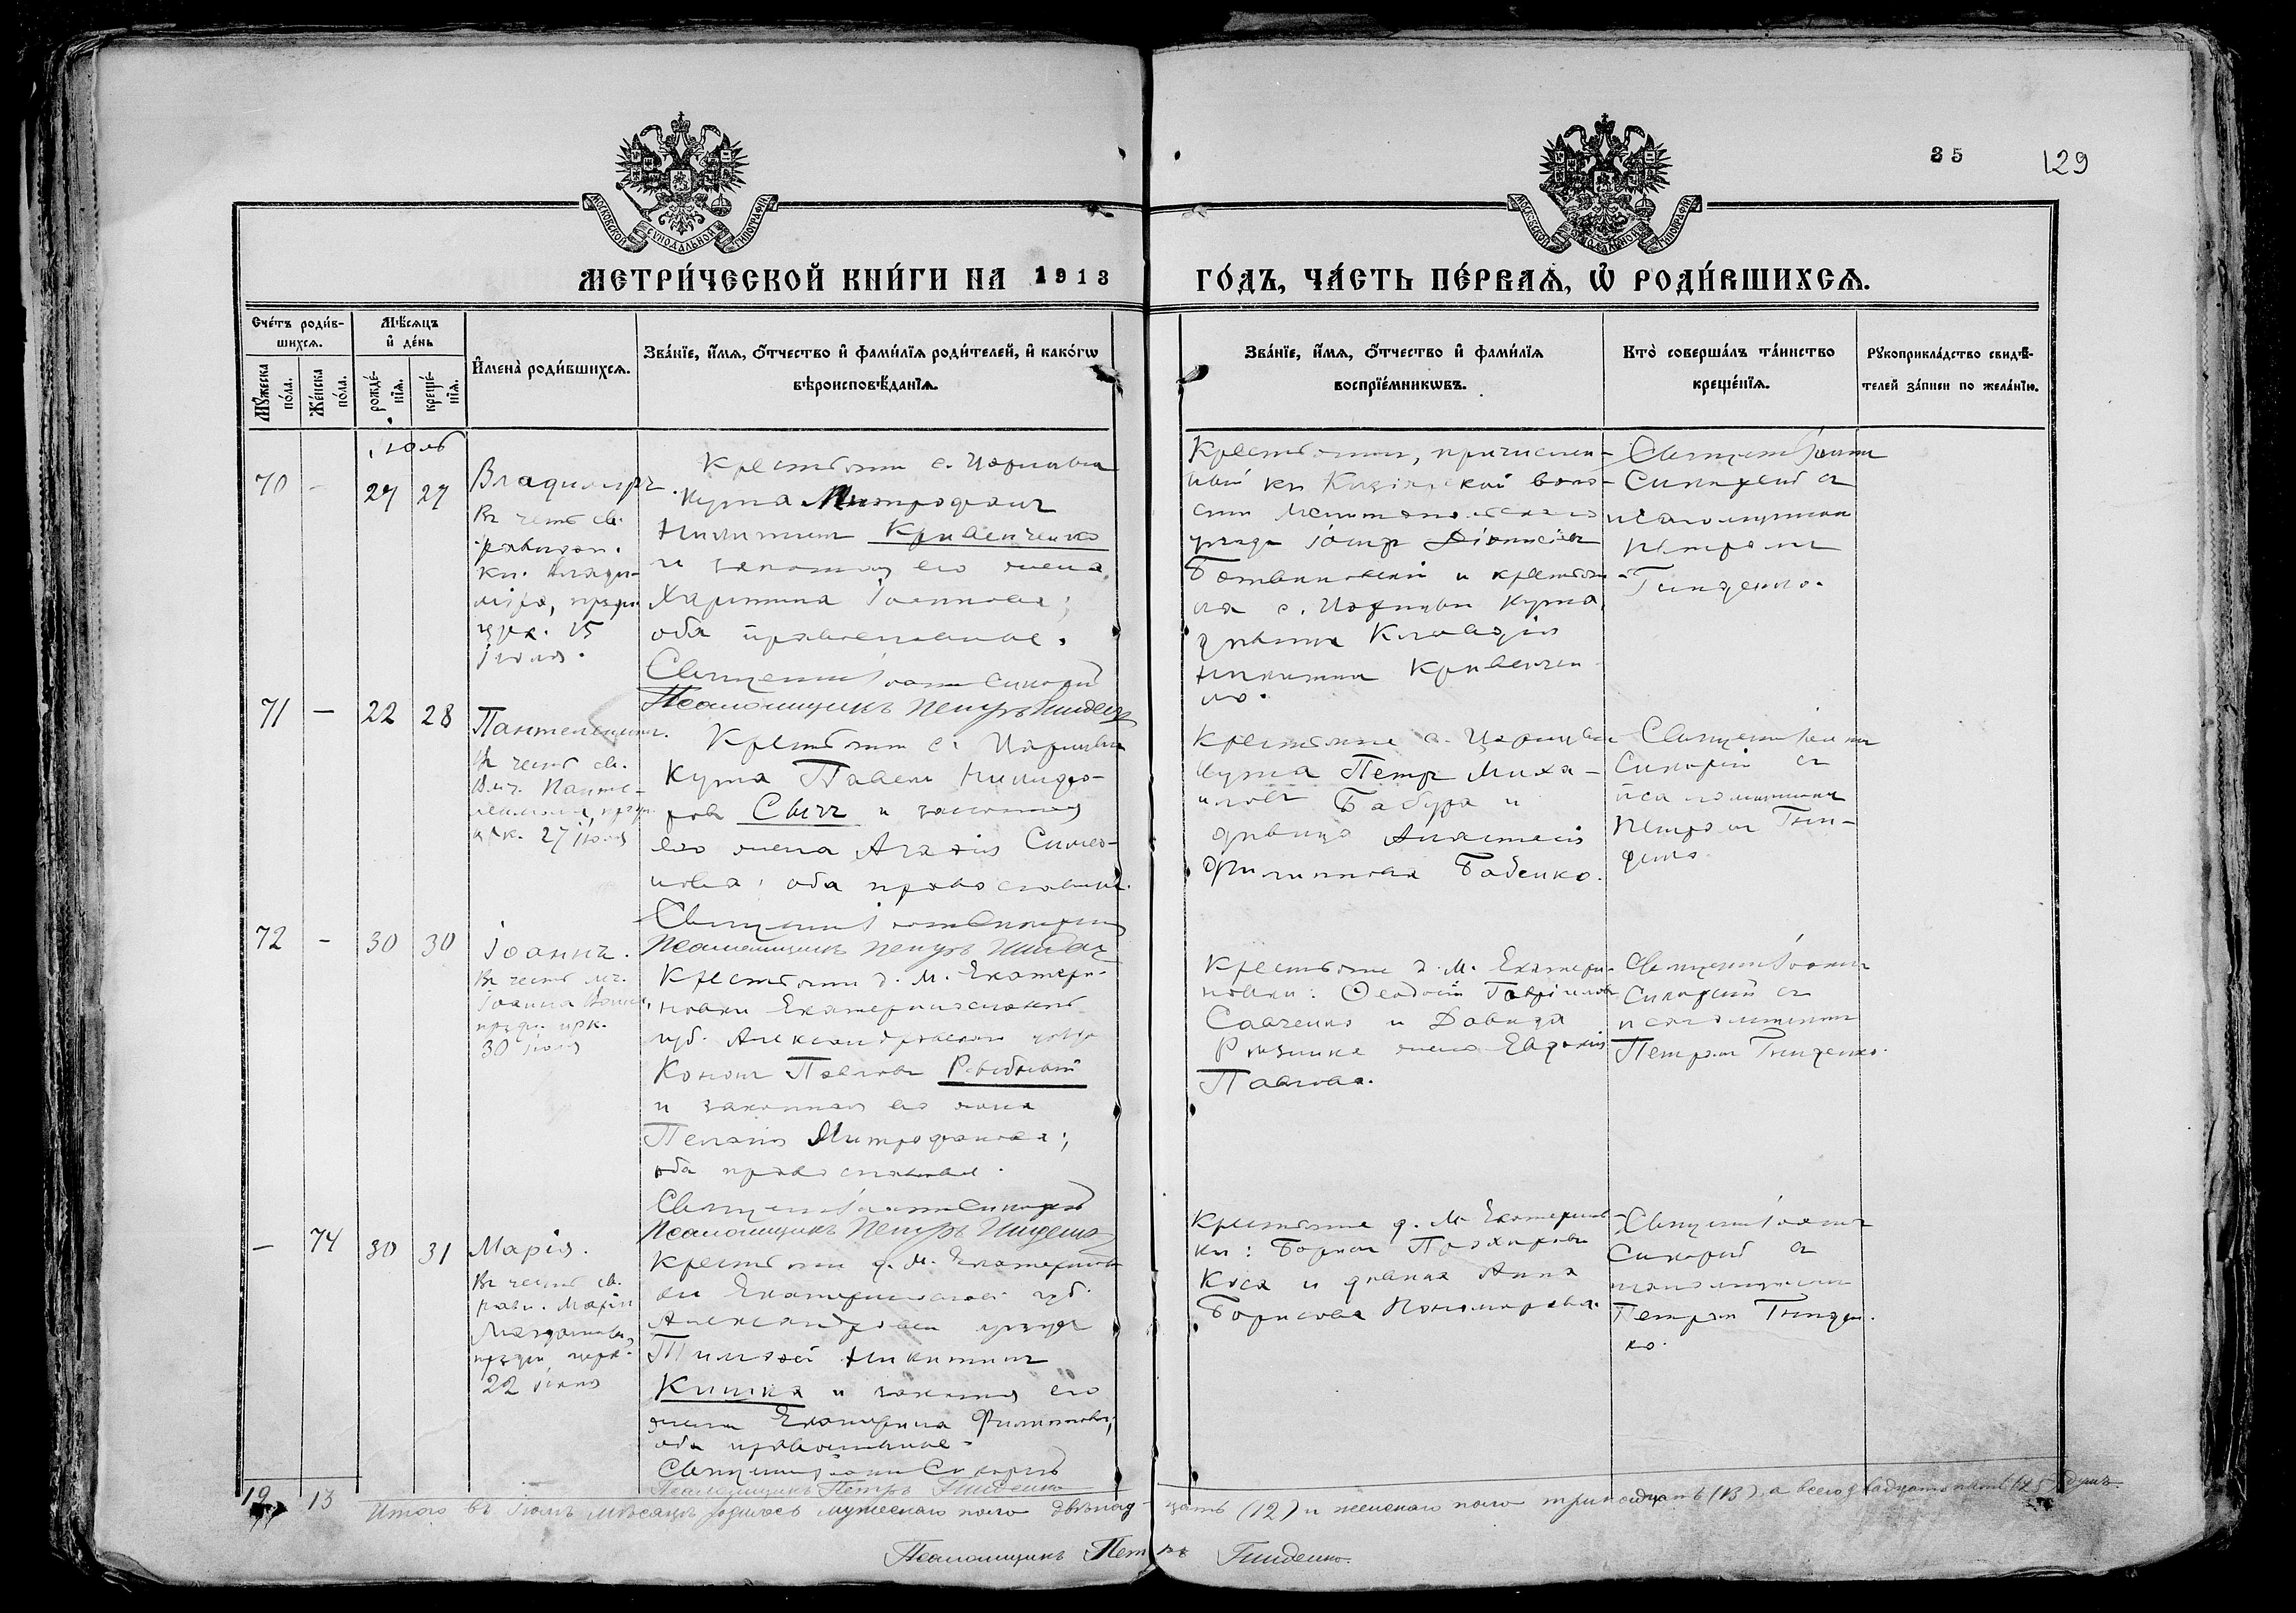 35
129
МЕТРИ́ЧЕСКОЙ КНИ́ГИ НА 1913 ГО́ДЪ, ЧА́СТЬ ПЕ́РВАѦ, Ѡ҆ РОДИ́ВШИХСѦ.
Сче́тъ роди́в-
шихсѧ.
Мꙋ́жеска по́ла.
Же́нска по́ла.
Мѣ́сѧцъ
и҆ де́нь
рожде́-
нїѧ.
креще́-
нїѧ.
И҆мена̀ роди́вшихсѧ.
Зва́нїе, и҆́мѧ, ѻ҆́тчество и҆ фами́лїѧ роди́телей, и҆ како́гѡ
вѣроисповѣ́данїѧ.
Зва́нїе, и҆́мѧ, ѻ҆́тчество и҆ фами́лїѧ
воспрїе́мникѡвъ.
Кто̀ соверша́лъ та́инство
креще́нїѧ.
Рꙋкоприкла́дство свидѣ́-
телей за́писи по жела́нїю.
Іюль
70 - 27 27
Владиміръ.
Въ честь св.
равноап.
кн. Влади-
міра, праздн.
церк. 15
Іюля.
Крестьянинъ с. Царицына
Кута Митрофанъ
Никитинъ Кривенченко
и законная его жена
Харитина Іоаннова;
оба православные.
Священникъ Іоаннъ
Псаломщикъ Петръ Гниденко
Крестьянинъ, причислен-
ный къ волос-
сти Мелитопольскаго
уѣзда Іосифъ Діонисіевъ
и крестьян-
ка с. Царицына Кута,
дѣвица Клавдія
Никитина Кривенчен-
ко.
Священникъ Іоаннъ
съ
псаломщикомъ
Петромъ
Гниденко.
71 - 22 28
Пантелеимонъ.
Въ честь св.
Вмч. Панте-
леимона, праздн.
црк. 27 Іюля
Крестьянинъ с. Царицына
Кута Павелъ Никифо-
ровъ Сычъ и законная
его жена Агафія Симео-
нова; оба православные.
Священникъ Іоаннъ
Псаломщикъ Петръ Гниденко
Крестьяне с. Царицына
Кута Петръ Миха-
иловъ Бабура и
дѣвица Анастасія
Филиппова Бабенко.
Священникъ Іоаннъ
съ
псаломщикомъ
Петромъ Гни-
денко.
72 - 30 30
Іоаннъ.
Въ честь мч.
Іоанна Воина,
праздн. црк.
30 Іюля
Крестьянинъ д. М. Екатери-
новки Екатеринославской
губ. Александровскаго уѣзда
Кононъ Павловъ Рыбный
и законная его жена
Пелагія Митрофанова;
оба православные.
Священникъ Іоаннъ
Псаломщикъ Петръ Гниденко
Крестьяне д. М. Екатери-
новки: Ѳеодосій Гавріиловъ
Савченко и Давида
жена Евдокія
Павлова.
Священникъ Іоаннъ
съ
псаломщикомъ
Петромъ Гниденко.
- 74 30 31
Марія.
Въ честь св.
равн. Маріи
Магдалины,
праздн. церк.
22 Іюля
Крестьянинъ д. М. Екатеринов-
ки Екатеринославск. губ.
Александровск. уѣзда
Тимоѳей Никитинъ
Кишка и законная его
жена Екатерина Филиппова,
оба православные.
Священникъ Іоаннъ
Псаломщикъ Петръ Гниденко
Крестьяне д. М. Екатеринов-
ки: Прохоровъ
Коса и дѣвица Анна
Борисова Пономарева.
Священникъ Іоаннъ
съ
псаломщикомъ
Петромъ Гниден-
ко.
12 13 Итого въ Іюлѣ мѣсяцѣ родилось мужескаго пола двѣнад-цать (12) и женскаго пола тринадцать (13) а всего двадцать пять (25) душъ.
Псаломщикъ Петръ Гниденко.